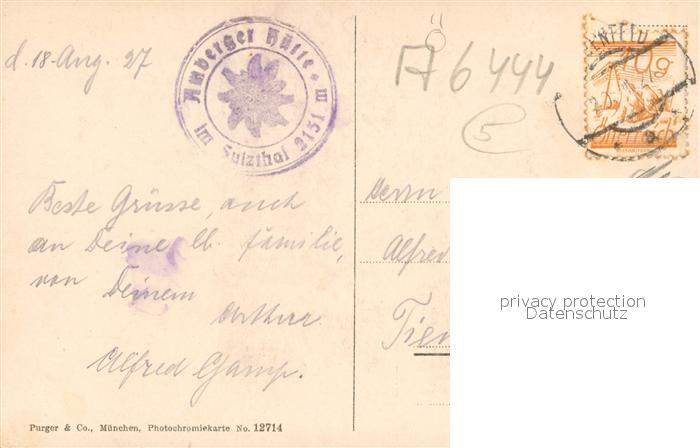 d. 18. Aug. 27
Amberger Hütte
im Sulzthal 2151 m
Beste Grüsse, auch
an Deine lb. Familie,
von Deinem
Arthur
Alfred Gamp.
Purger & Co., München, Photochromiekarte No. 12714
A6444
5
10g
Österreich
Herrn
Alfred
privacy protection
Datenschutz